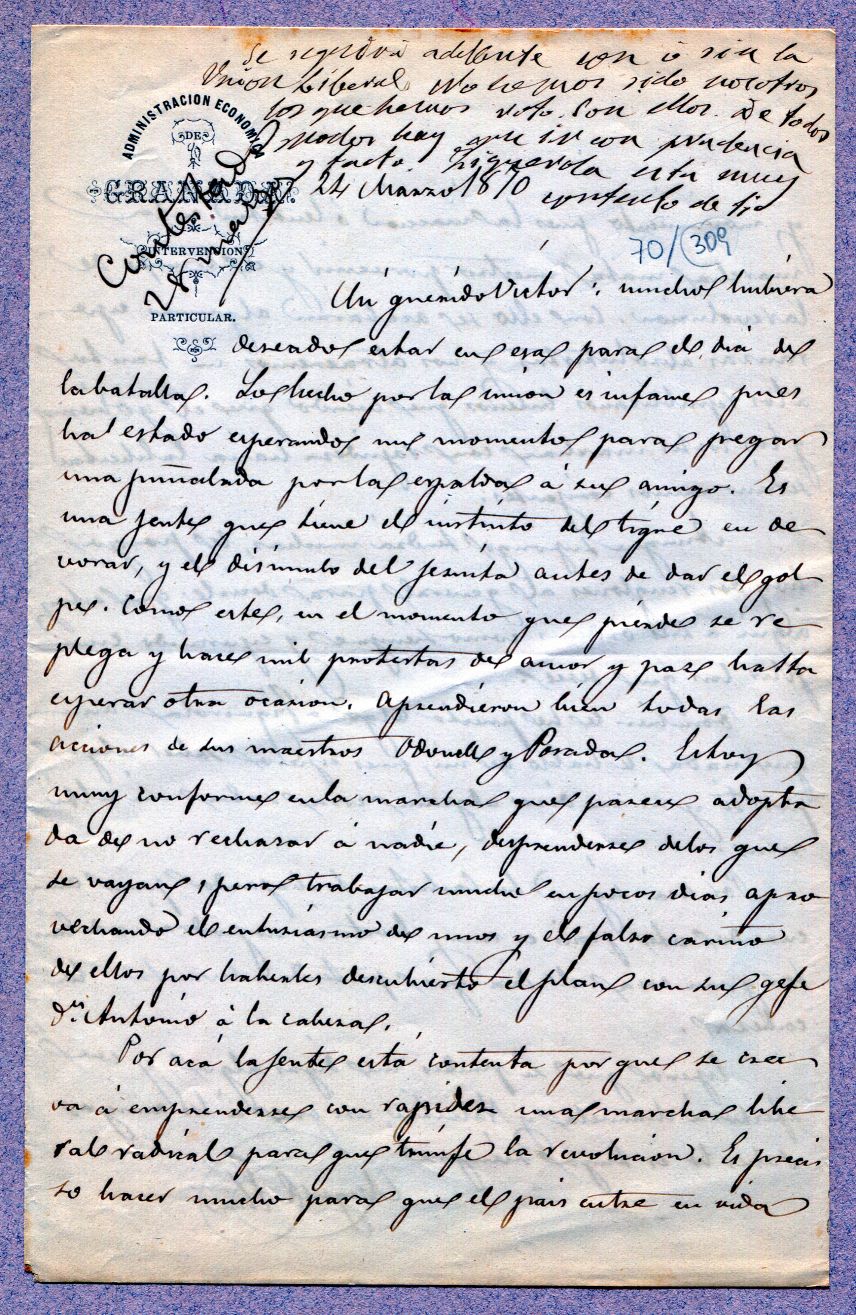 Se seguirá adelante con ó sin la
Union liberal. No hemos sido nosotros
los que hemos roto con ellos. De todos
modos hay que ir con prudencia
y tacto. Figuerola está muy
contento de
ADMINISTRACION ECONOMICA
DE
GRANADA.
INTERVENCION
PARTICULAR.
Contestada
28 marzo
24 Marzo 1870
70/(309
Mi querido Victor: mucho hubiera
deseado estar en esa para el dia de
la batalla. Lo hecho por la union es infame pues
ha estado esperando un momento para pegar
una puñalada por la espalda á su amigo. Es
una jente que tiene el instinto del tigre en de
vorar, y el disimulo del jesuita antes de dar el gol
pe. Como este, en el momento que pierde se re
plega y hace mil protestas de amor y paz hasta
esperar otra ocasion. Aprendieron bien todas las
acciones de sus maestros Odonell y Posada. Estoy
muy conforme en la marcha que parece adopta
da de no rechazar á nadie, desprenderse de los que
se vayan, pero trabajar mucho en pocos dias apro
vechando el entusiasmo de unos y el falso cariño
de ellos por haberles descubierto el plan con su gefe
Dn. Antonio á la cabeza.
Por acá la jente está contenta por que se cree
va á emprenderse con rapidez una marcha libe
ral radical para que triunfe la revolucion. Es preci
so hacer mucho para que el pais entre en vida